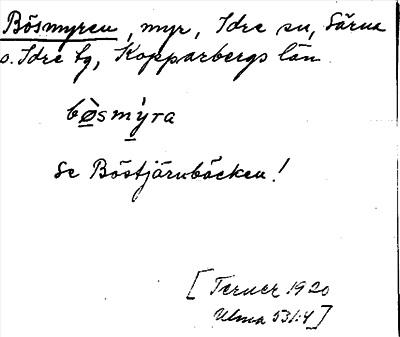 Bösmyren, myr, Idre sn, Särna
o. Idre tg, Kopparbergs län
bø̀smýra
Se Böstjärnbäcken!
[Terner 1920
Ulma 531:4]